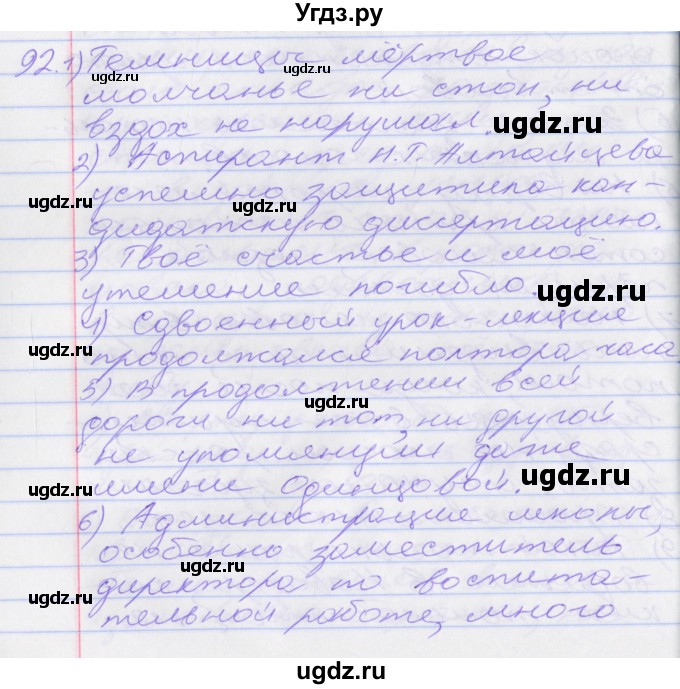 Угдз.ру
92. 1) Темницы мёртвое
молчанье ни стон, ни
вздох не нарушал.
2) Аспирант Н.Т. Алтайцева
успешно защитила кан-
дидатскую диссертацию.
3) Твоё счастье и моё
утешение погибло.
4) Сдвоенный урок-лекция
продолжался полтора часа
5) В продолжении всей
дороги ни тот, ни другой
не упомянули даже
имени Одинцовой.
6) Администрация школы,
особенно заместитель
директора по воспита-
тельной работе, много
ugdz.ru